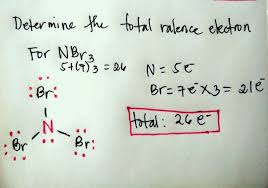 Determine the total valence electron
For NBr3
5+(7)3 = 26
N = 5e⁻
Br = 7e⁻ x3 = 21e⁻
total: 26 e⁻
:Br:
N
:Br:
Br: